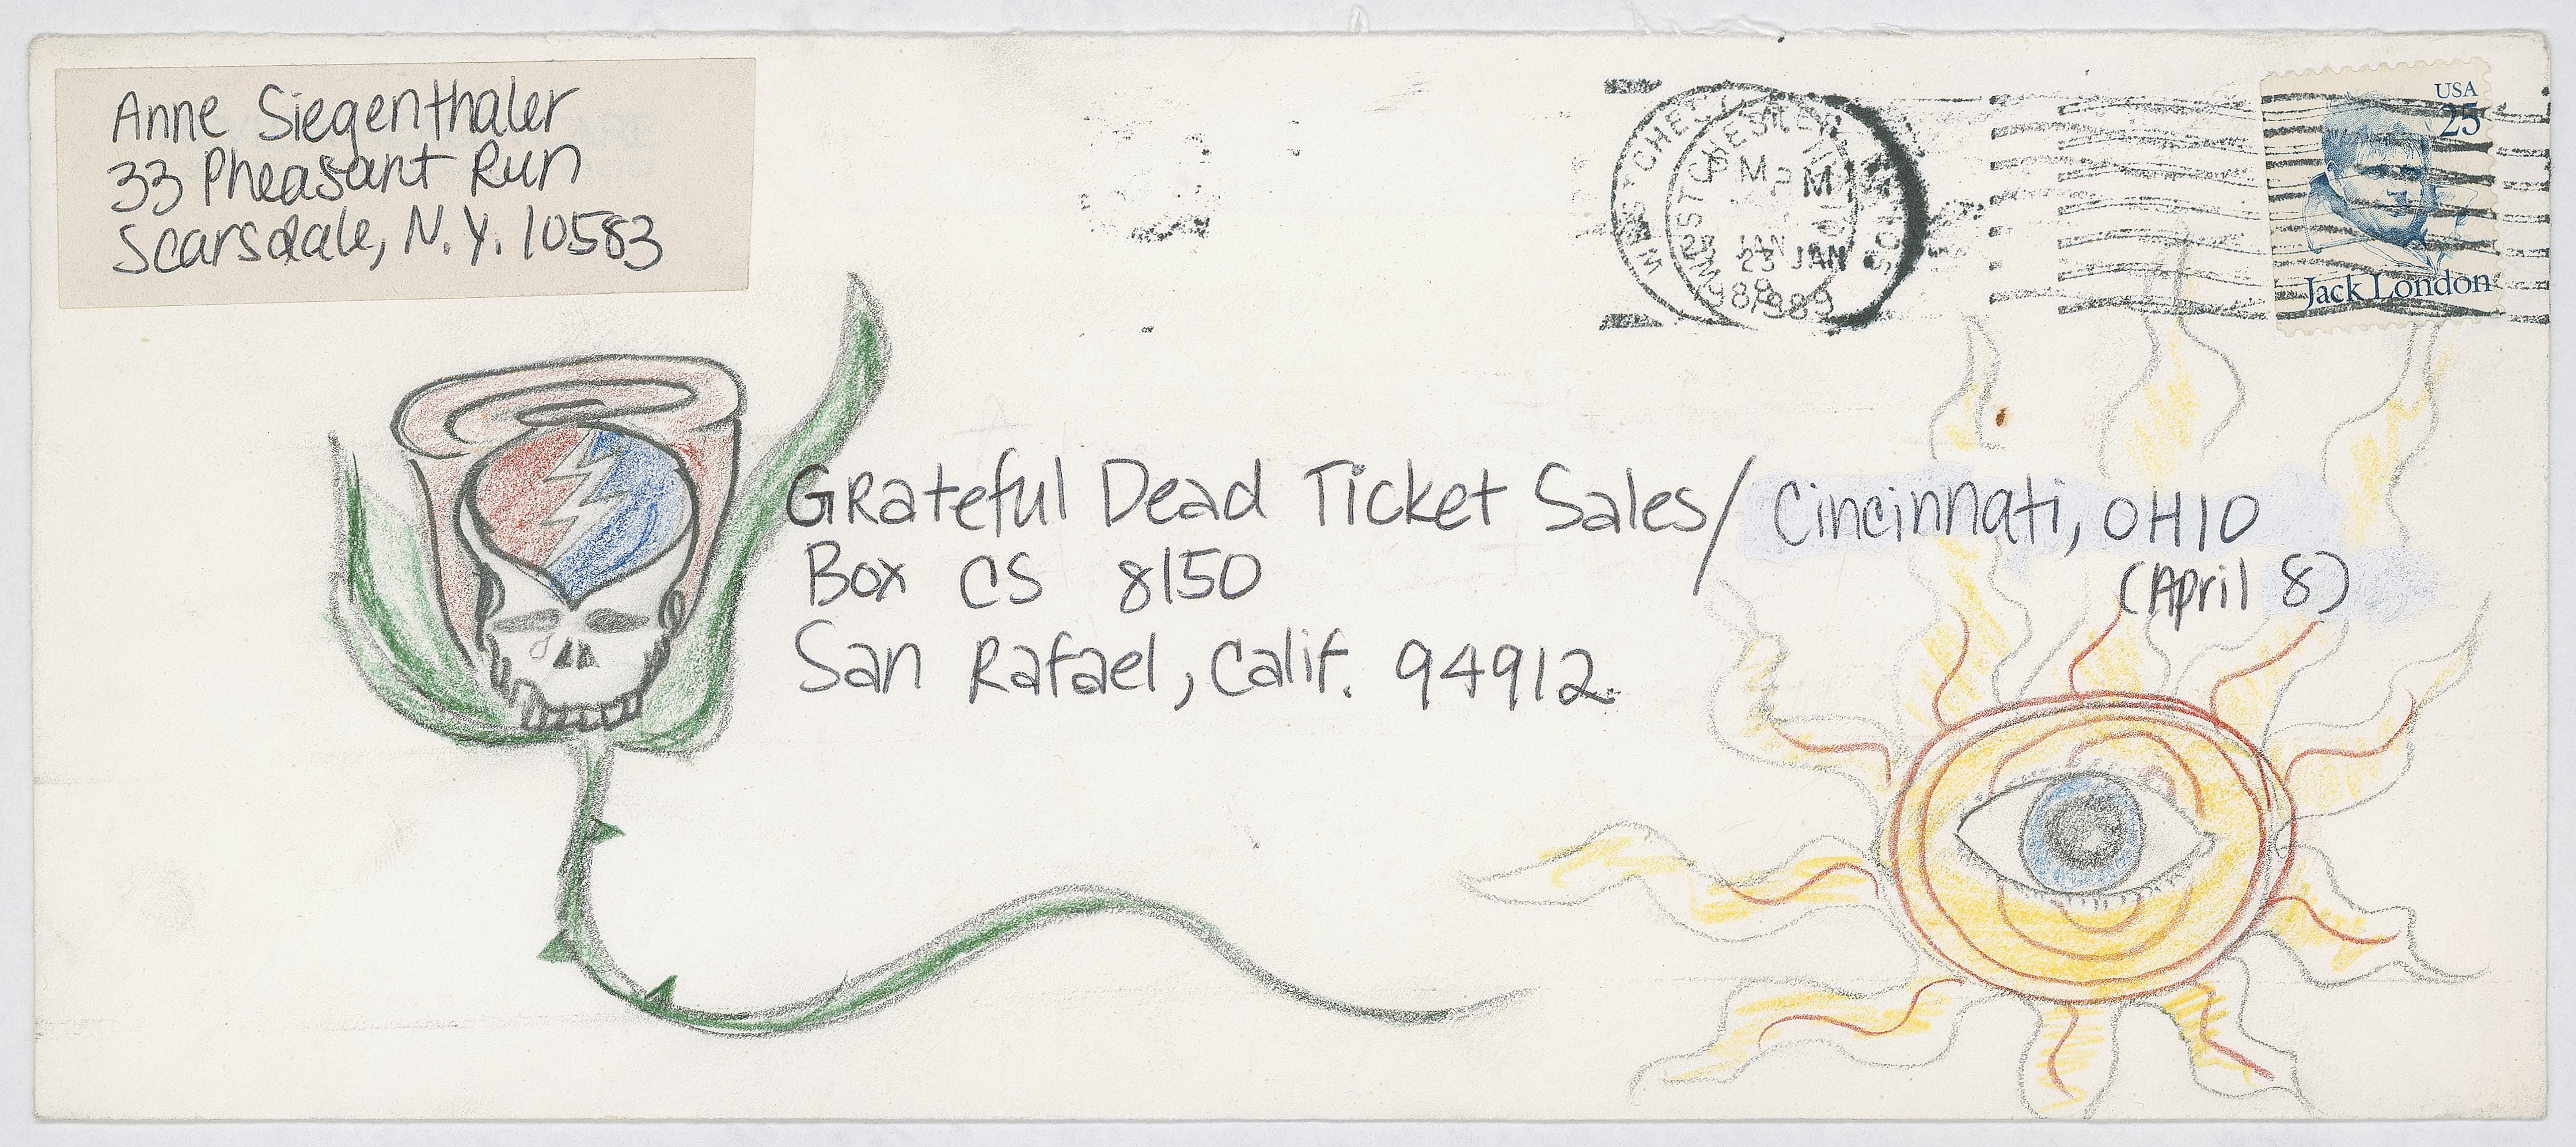 Anne Siegenthaler
33 Pheasant Run
Scarsdale, N.Y. 10583
WESTCHESTER
PM PM
23 JAN
23 JAN
1989
USA
25
Jack London
Grateful Dead Ticket Sales/ Cincinnati, OHIO
(April 8)
Box CS 8150
San Rafael, Calif. 94912